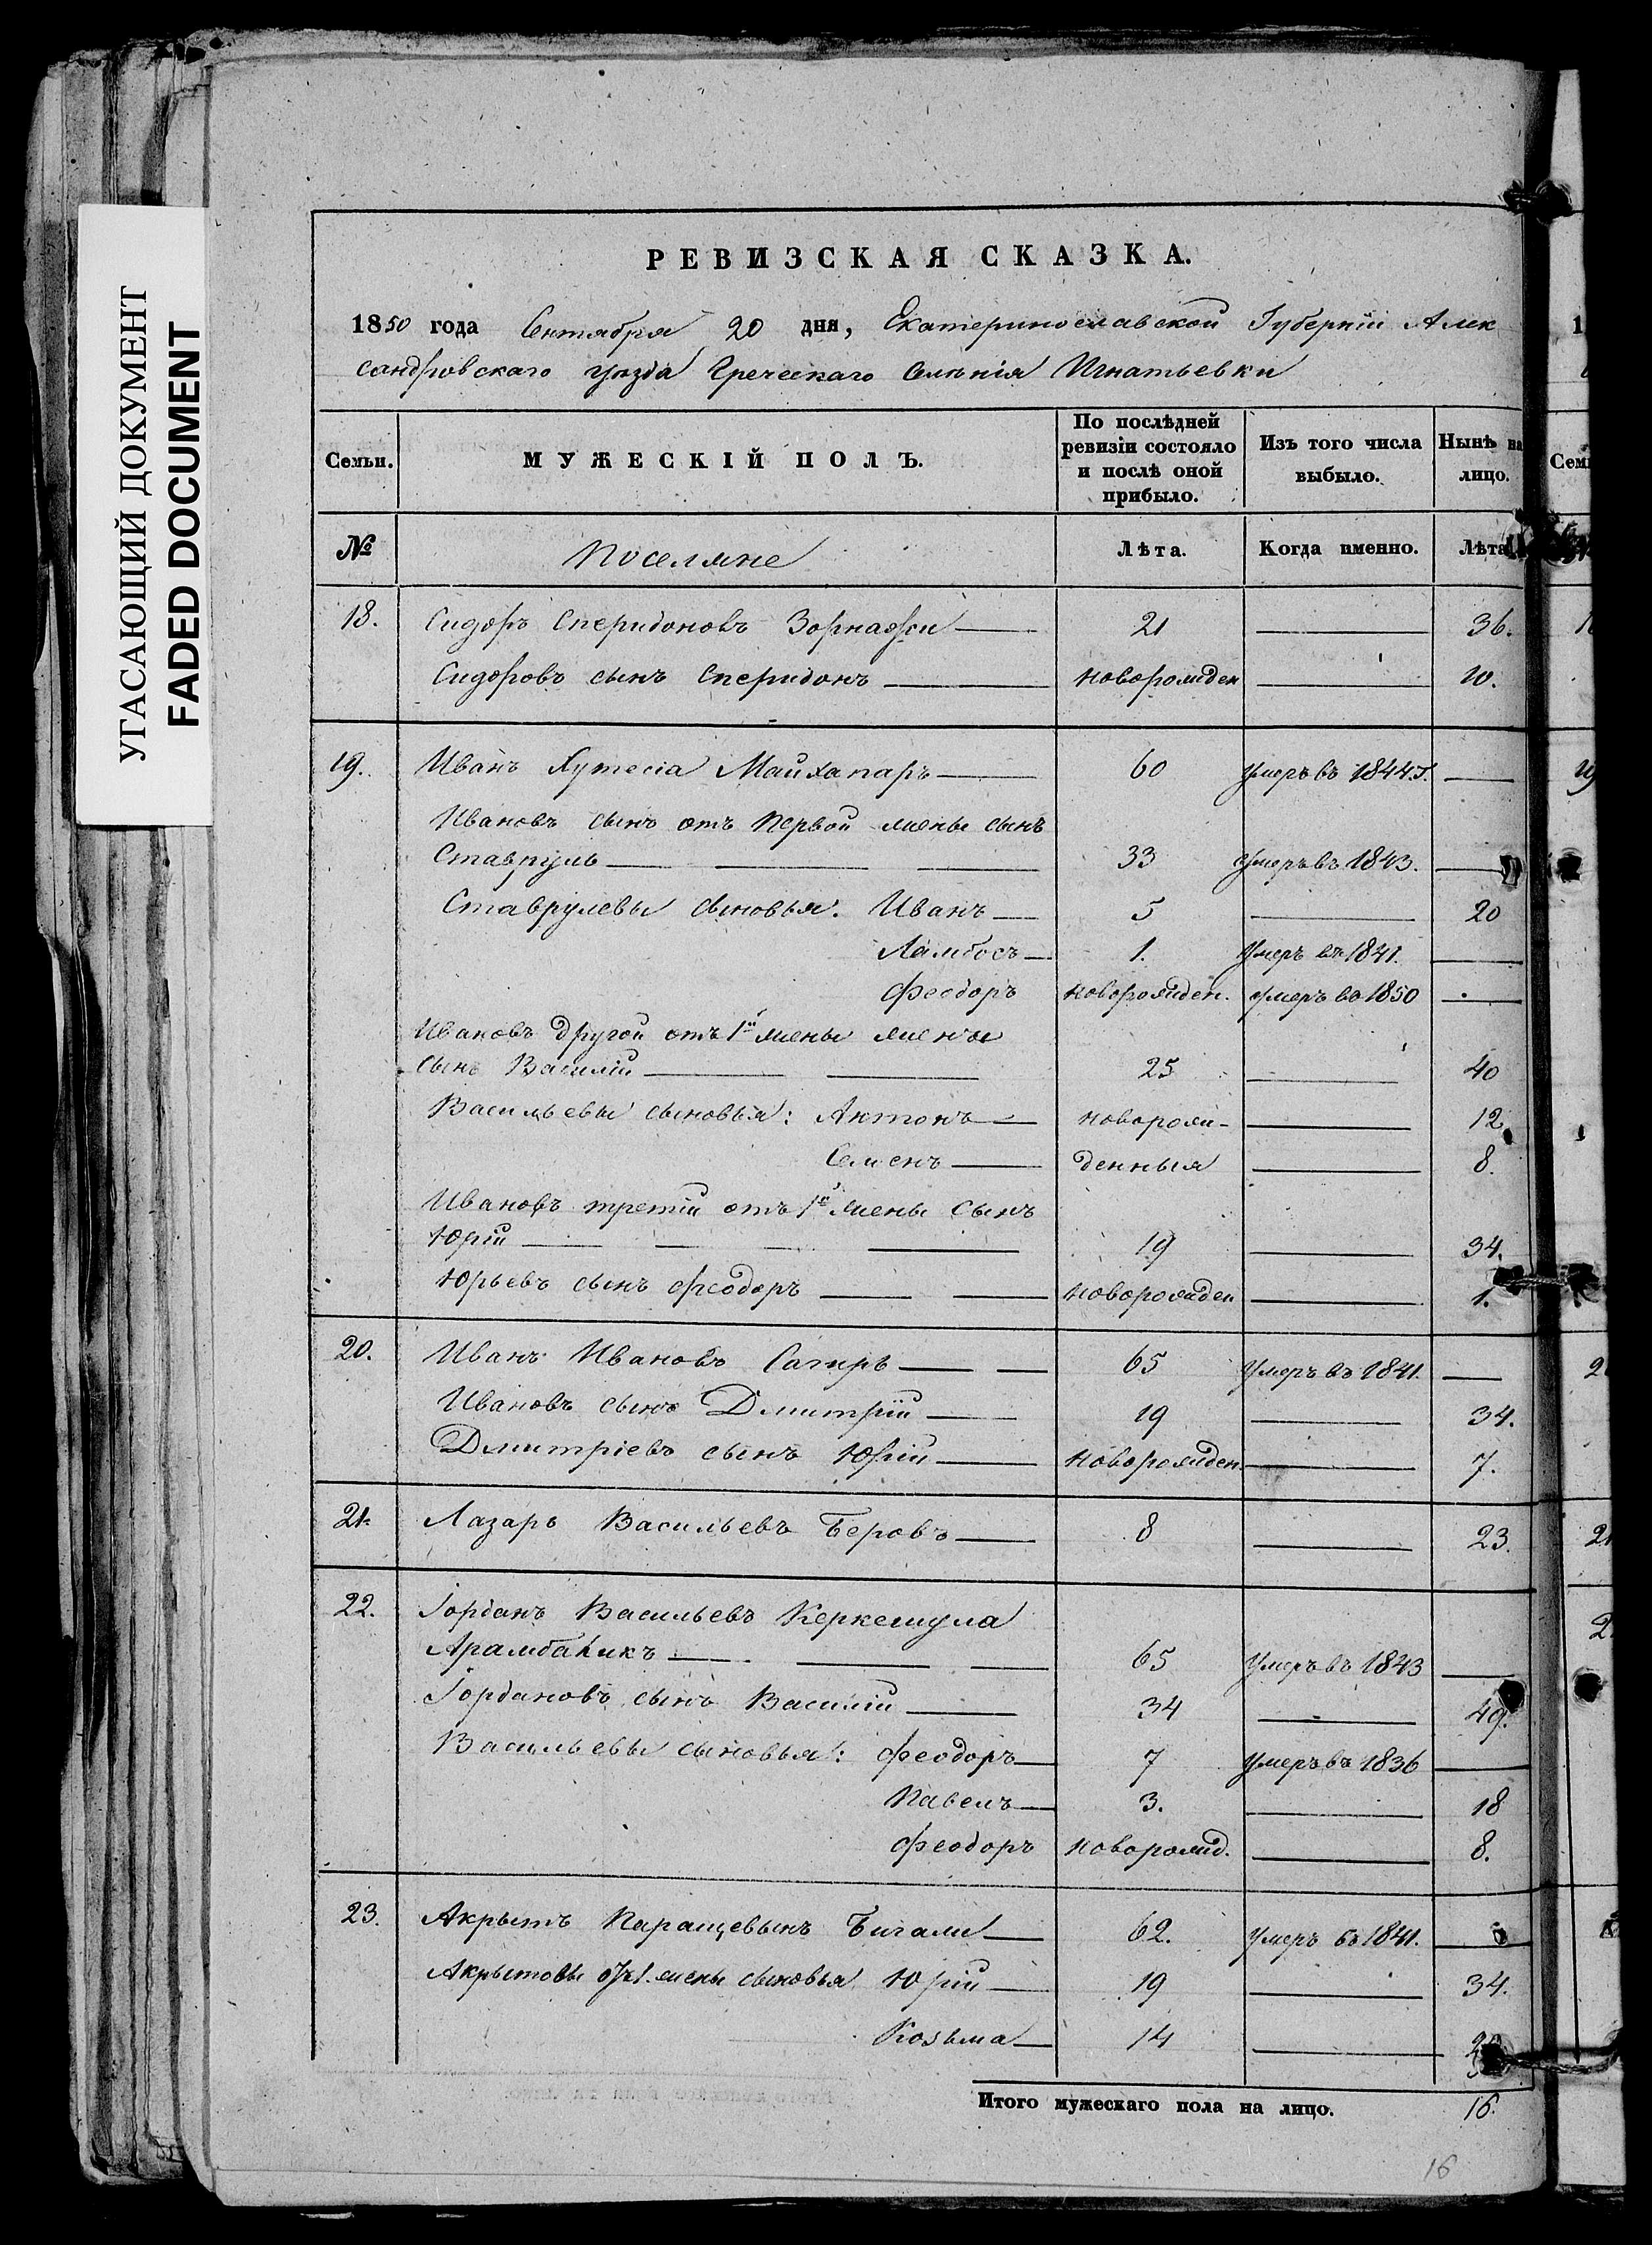 УГАСАЮЩИЙ ДОКУМЕНТ
FADED DOCUMENT
РЕВИЗСКАЯ СКАЗКА.
1850 года Сентября 20 дня, Екатеринославской Губерніи Алек
сандровскаго уѣзда Греческаго Селенія Игнатьевки
Семьи. МУЖЕСКІЙ ПОЛЪ. По послѣдней ревизіи состояло и послѣ оной прибыло. Изъ того числа выбыло. Нынѣ на лицо.
№ Поселяне Лѣта. Когда именно. Лѣта
18. Сидоръ Спиридоновъ 21 — 36.
Сидоровъ сынъ Спиридонъ — новорожден — 10.
19. Иванъ Хутесіа Майхапаръ — 60 умеръ въ 1844 г. —
Ивановъ сынъ отъ первой жены сынъ
Ставруль — 33 умеръ въ 1843. —
Ставрулевы сыновья. Иванъ — 5 — 20
Ламбосъ — 1. Умеръ въ 1841. —
Феодоръ новорожден. умеръ во 1850 —
Ивановъ другой отъ 1й жены жены
сынъ Василій — 25 — 40
Васильевы сыновья: Антонъ — новорож- — 12
Семенъ — денныя — 8.
Ивановъ третій отъ 1й жены сынъ
Юрій — 19 — 34.
Юрьевъ сынъ Феодоръ — новорожден — 1.
20. Иванъ Ивановъ Сатиръ — 65 Умеръ въ 1841. —
Ивановъ сынъ Дмитрій — 19 — 34.
Дмитріевъ сынъ Юрій — новорожден. — 7.
21. Лазарь Васильевъ Беровъ — 8 — 23.
22. Іорданъ Васильевъ Керкешула
Арамбаникъ — 65 Умеръ въ 1843 —
Іордановъ сынъ Василій — 34 — 49.
Васильевы сыновья: Феодоръ — 7 Умеръ въ 1836 —
Павелъ — 3. — 18
Феодоръ новорожд. — 8.
23. Акрытъ Паращевынъ Бигали — 62. Умеръ въ 1841. —
Акрытовы отъ 1. жены сыновья Юрій — 19 — 34.
Козьма — 14 —
Итого мужескаго пола на лицо. 16.
16